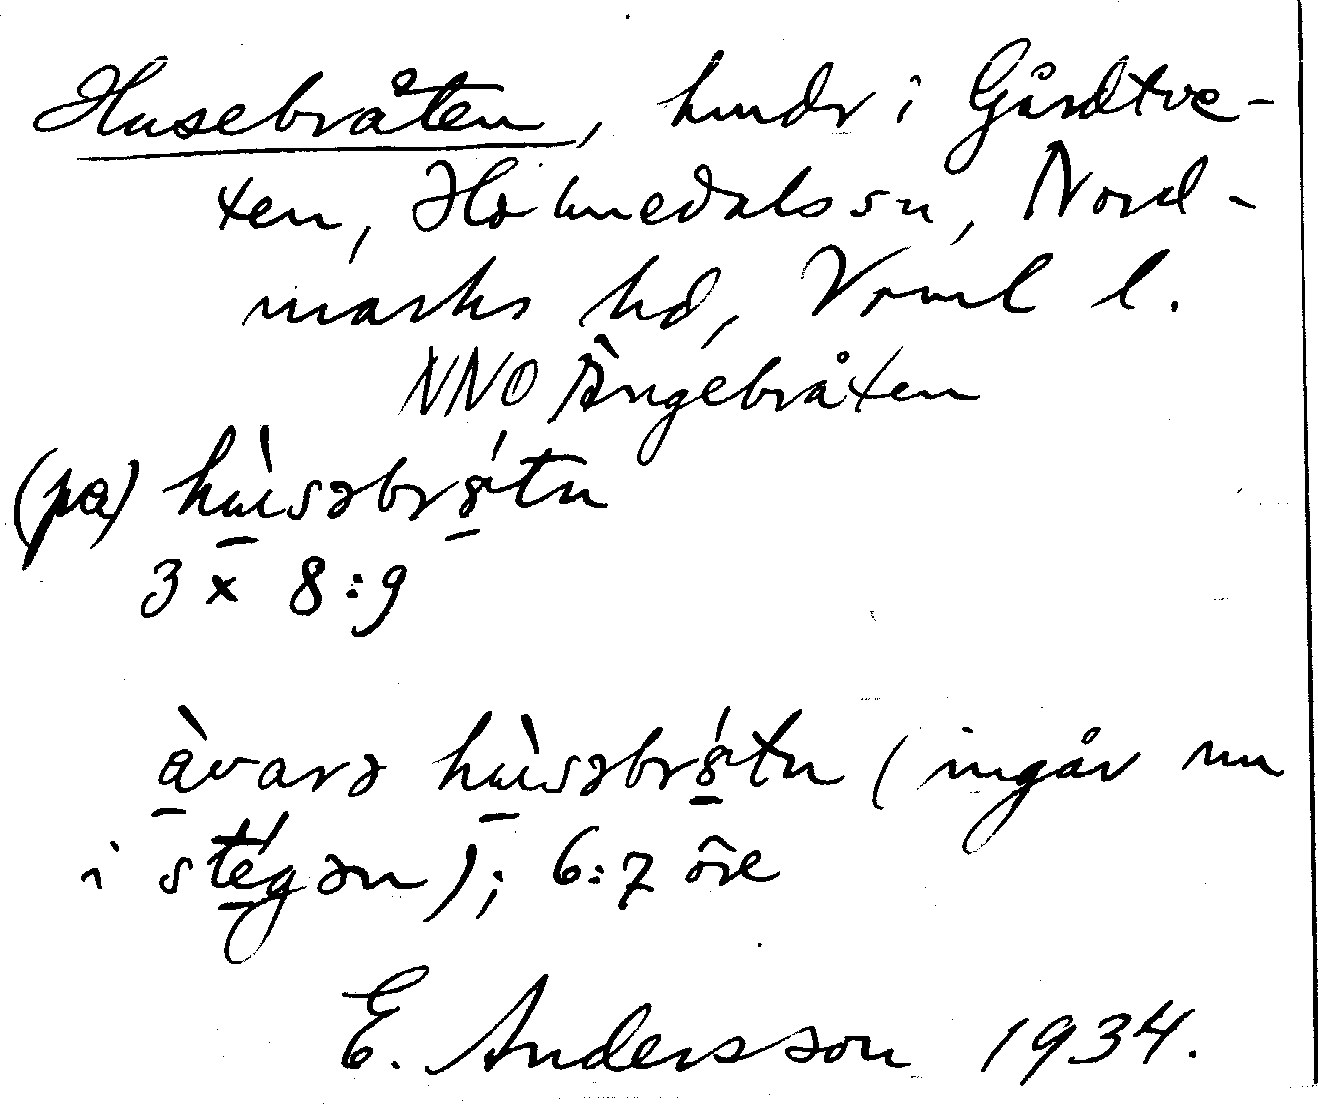 Husebråten, hmdr i Gårdtve-
ten, Holmedals sn, Nord-
marks hd, Vrml l.
NNO Ängebråten
(på) hùsəbrátn
3 x 8:9
àvarə hùsəbrátn (ingår nu
i stégən); 6:7 öre
E. Andersson 1934.